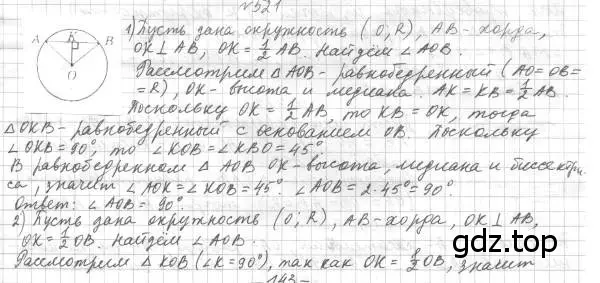 №521
A K B O
1) Пусть дана окружность (O; R), AB - хорда,
OK ⊥ AB, OK = 1/2 AB. Найдём ∠AOB.
Рассмотрим △AOB - равнобедренный (AO = OB =
= R), OK - высота и медиана. AK = KB = 1/2 AB.
Поскольку OK = 1/2 AB, то KB = OK, тогда
△OKB - равнобедренный с основанием OB. Поскольку
∠OKB = 90°, то ∠KOB = ∠KBO = 45°.
В равнобедренном △AOB OK - высота, медиана и биссектри-
са, значит ∠AOK = ∠KOB = 45° ∠AOB = 2·45° = 90°.
Ответ: ∠AOB = 90°.
2) Пусть дана окружность (O; R), AB - хорда, OK ⊥ AB,
OK = 1/2 OB. Найдём ∠AOB.
Рассмотрим △KOB (∠K = 90°), так как OK = 1/2 OB, значит
- 143 -
gdz.top